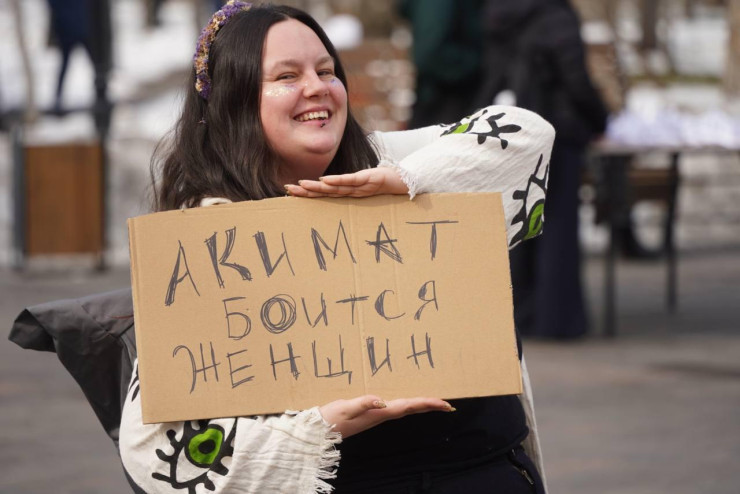 АКИМАТ
БОИТСЯ
ЖЕНЩИН